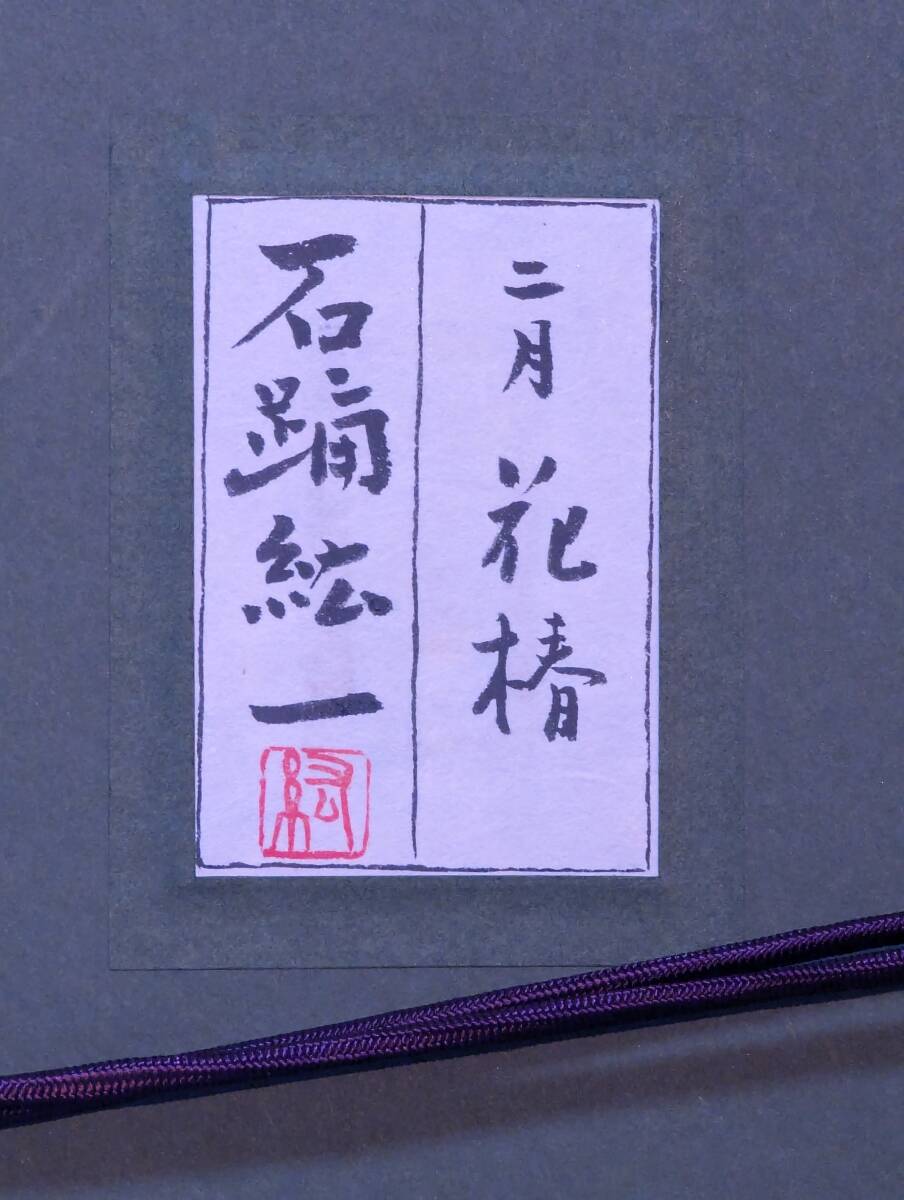 二月 花椿
石踊紘一
紘